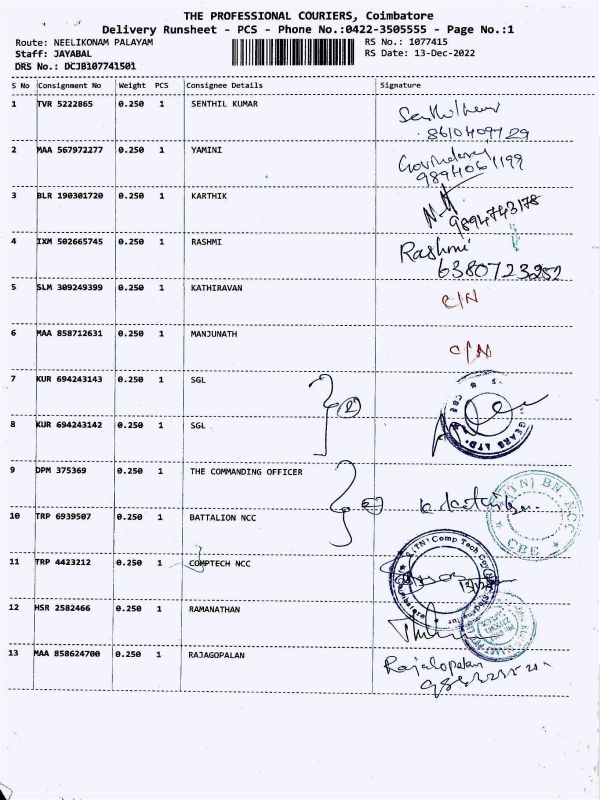 THE PROFESSIONAL COURIERS, Coimbatore
Delivery Runsheet - PCS - Phone No.:0422-3505555 - Page No.:1
Route: NEELIKONAM PALAYAM
RS No.: 1077415
Staff: JAYABAL
RS Date: 13-Dec-2022
DRS No.: DCJB107741501
S No Consignment No Weight PCS Consignee Details Signature
1 TVR 5222865 0.250 1 SENTHIL KUMAR
8610409729
2 MAA 567972277 0.250 1 YAMINI
9894061199
3 BLR 190301720 0.250 1 KARTHIK
9894743178
4 IXM 502665745 0.250 1 RASHMI Rashmi
6380723252
5 SLM 309249399 0.250 1 KATHIRAVAN C/N
6 MAA 858712631 0.250 1 MANJUNATH C/N
7 KUR 694243143 0.250 1 SGL
2
GEARS LTD. CBE
8 KUR 694243142 0.250 1 SGL
9 DPM 375369 0.250 1 THE COMMANDING OFFICER
(TN) BN. NCC
CBE
10 TRP 6939507 0.250 1 BATTALION NCC
(TN) Comp Tech Coy
11 TRP 4423212 0.250 1 COMPTECH NCC
12 HSR 2582466 0.250 1 RAMANATHAN
13 MAA 858624700 0.250 1 RAJAGOPALAN Rajalopalan